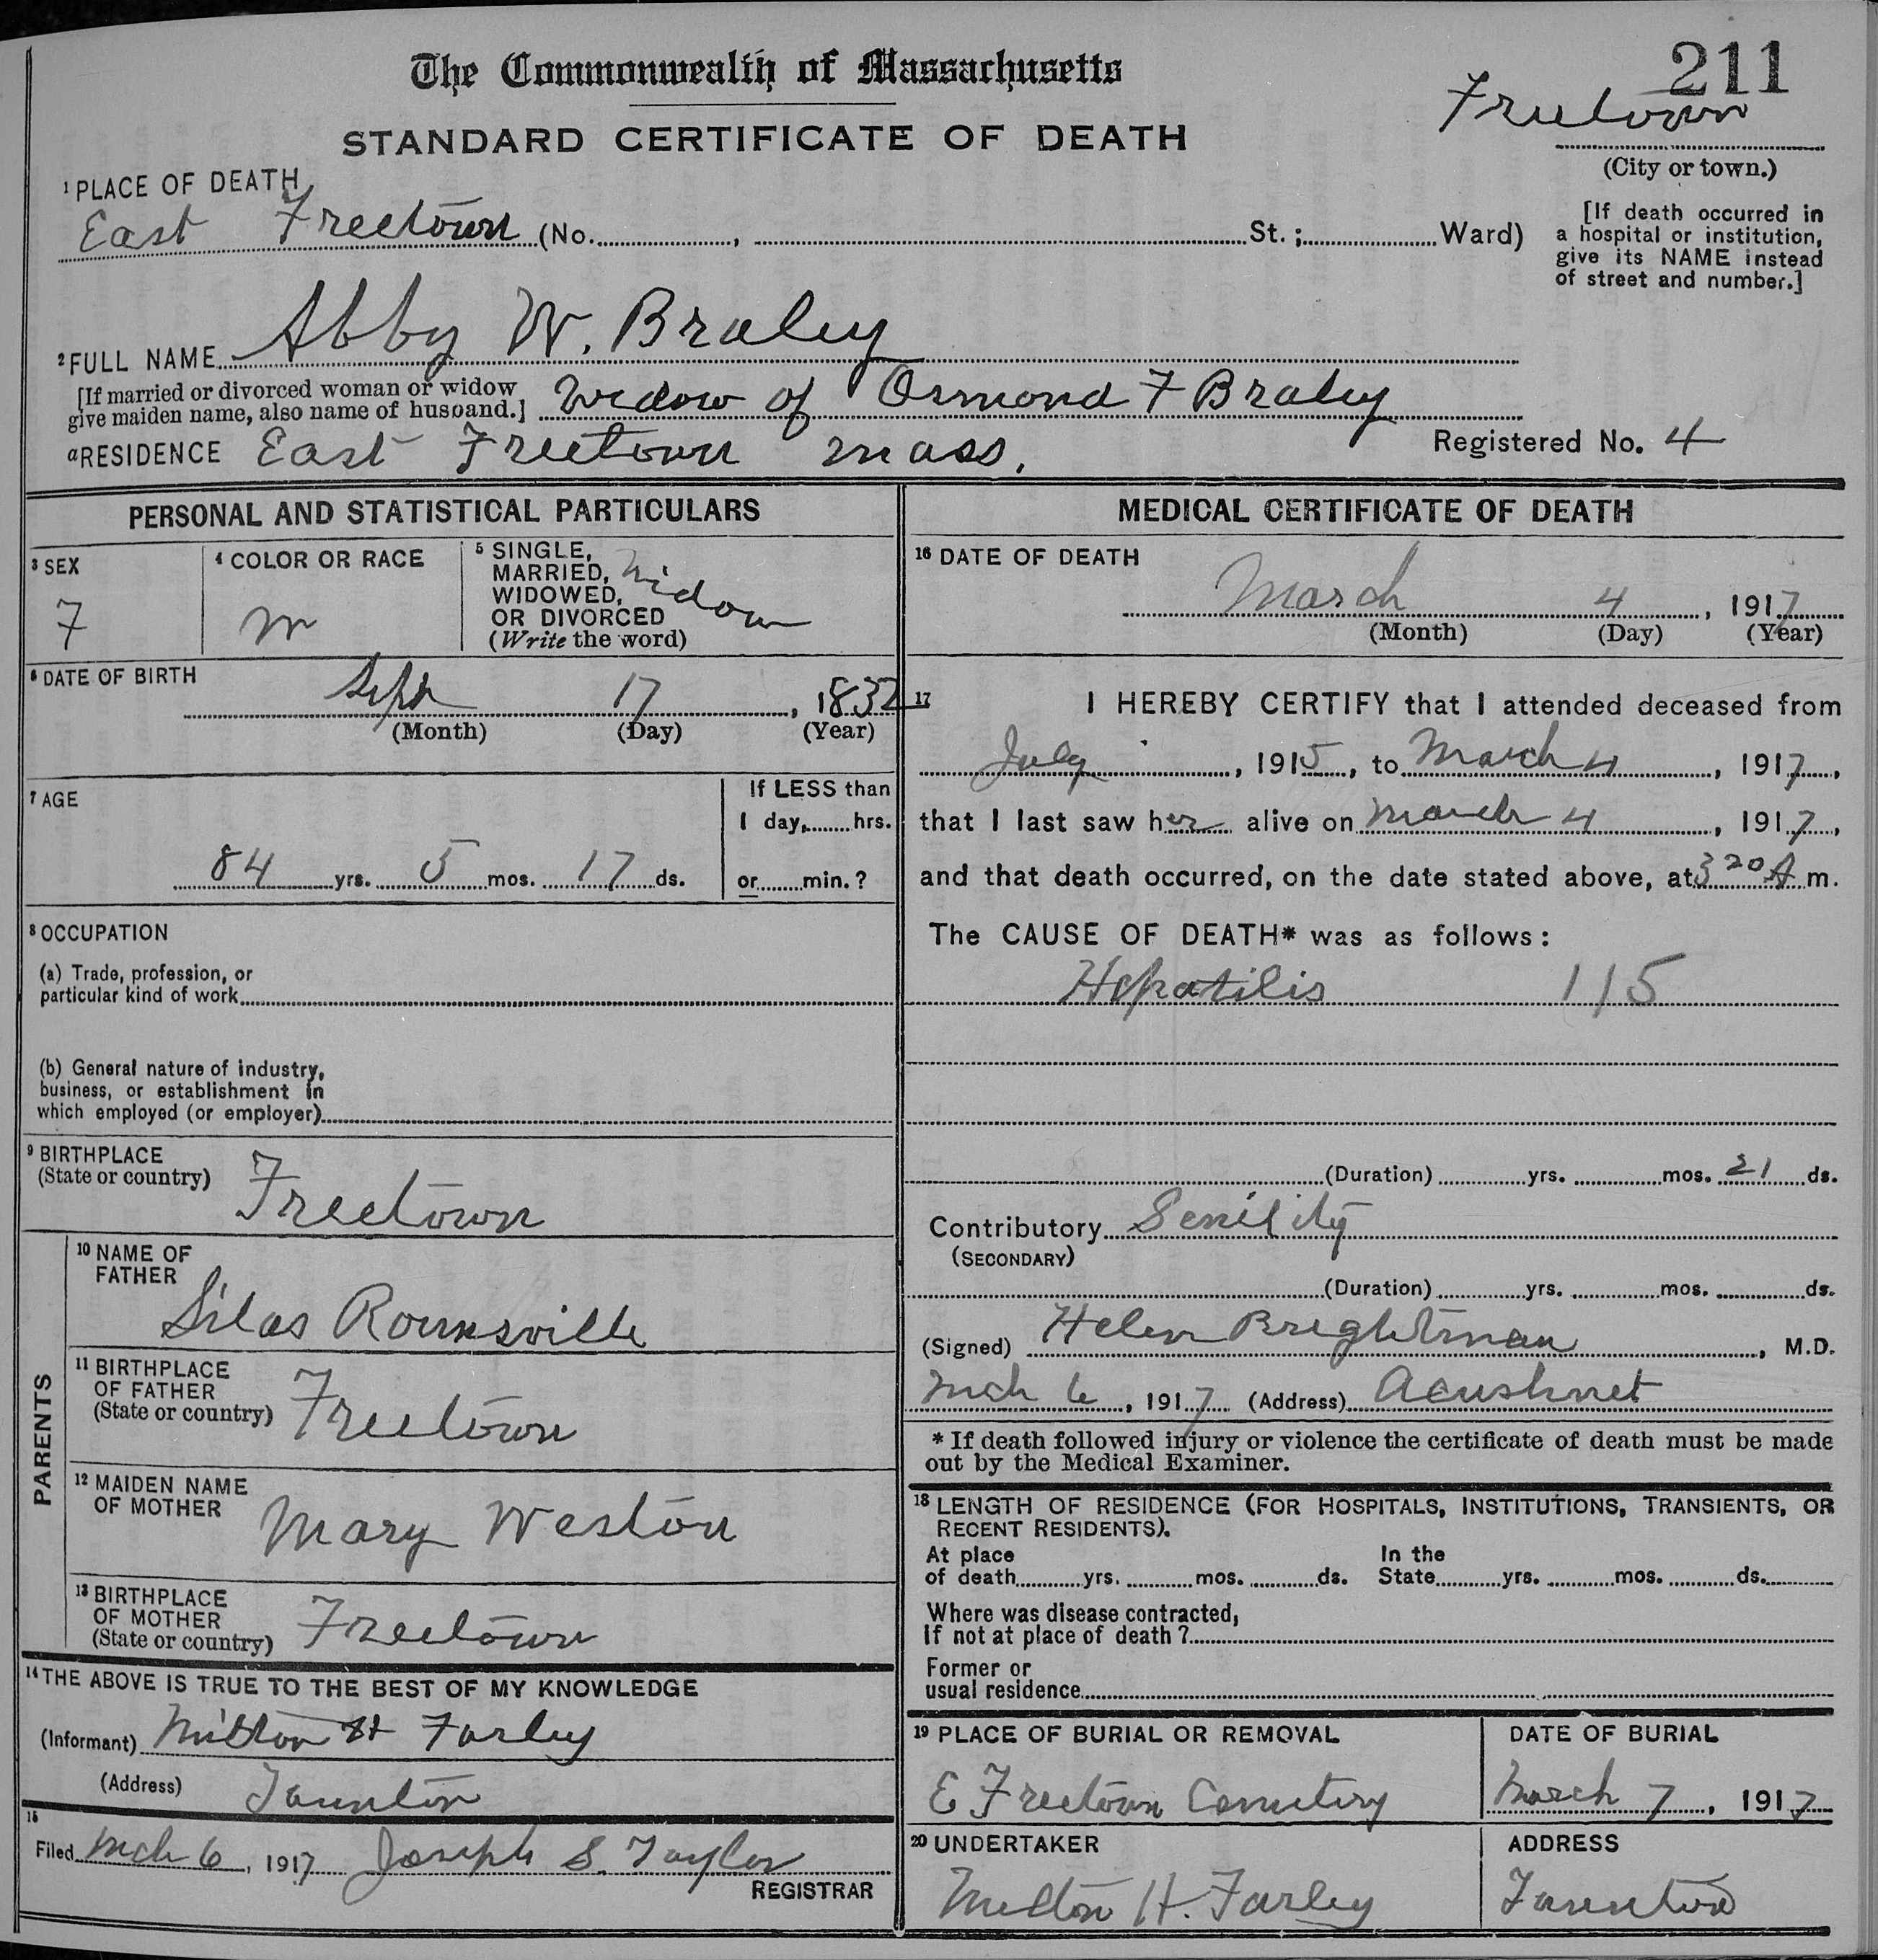 The Commonwealth of Massachusetts
211
STANDARD CERTIFICATE OF DEATH
Freetown
(City or town.)
1 PLACE OF DEATH
East Freetown (No. , St. ; Ward)
[If death occurred in a hospital or institution, give its NAME instead of street and number.]
2 FULL NAME Abby W. Braley
[If married or divorced woman or widow give maiden name, also name of husband.] Widow of Ormond F Braley
a RESIDENCE East Freetown Mass.
Registered No. 4
PERSONAL AND STATISTICAL PARTICULARS
3 SEX
F
4 COLOR OR RACE
W
5 SINGLE, MARRIED, WIDOWED, OR DIVORCED
(Write the word)
Widow
6 DATE OF BIRTH
Sept 17, 1832
(Month) (Day) (Year)
7 AGE
84 yrs. 5 mos. 17 ds.
If LESS than
1 day, hrs.
or min. ?
8 OCCUPATION
(a) Trade, profession, or
particular kind of work
(b) General nature of industry,
business, or establishment in
which employed (or employer)
9 BIRTHPLACE
(State or country)
Freetown
PARENTS
10 NAME OF FATHER
Silas Rounsville
11 BIRTHPLACE OF FATHER
(State or country) Freetown
12 MAIDEN NAME OF MOTHER
Mary Weston
13 BIRTHPLACE OF MOTHER
(State or country) Freetown
14 THE ABOVE IS TRUE TO THE BEST OF MY KNOWLEDGE
(Informant) Milton H Farley
(Address) Taunton
15
Filed Mch 6, 1917 Joseph S. Taylor
REGISTRAR
MEDICAL CERTIFICATE OF DEATH
16 DATE OF DEATH
March 4, 1917
(Month) (Day) (Year)
17 I HEREBY CERTIFY that I attended deceased from
July , 1915, to March 4, 1917,
that I last saw her alive on March 4, 1917,
and that death occurred, on the date stated above, at 3 20 A m.
The CAUSE OF DEATH* was as follows:
Hepatitis 115
(Duration) yrs. mos. 21 ds.
Contributory Senility
(SECONDARY)
(Duration) yrs. mos. ds.
(Signed) Helen Brightman, M.D.
Mch 6, 1917 (Address) Acushnet
* If death followed injury or violence the certificate of death must be made
out by the Medical Examiner.
18 LENGTH OF RESIDENCE (FOR HOSPITALS, INSTITUTIONS, TRANSIENTS, OR
RECENT RESIDENTS).
At place of death yrs. mos. ds. In the State yrs. mos. ds.
Where was disease contracted,
If not at place of death ?
Former or
usual residence
19 PLACE OF BURIAL OR REMOVAL
E Freetown Cemetery
DATE OF BURIAL
March 7, 1917
20 UNDERTAKER
Milton H. Farley
ADDRESS
Taunton